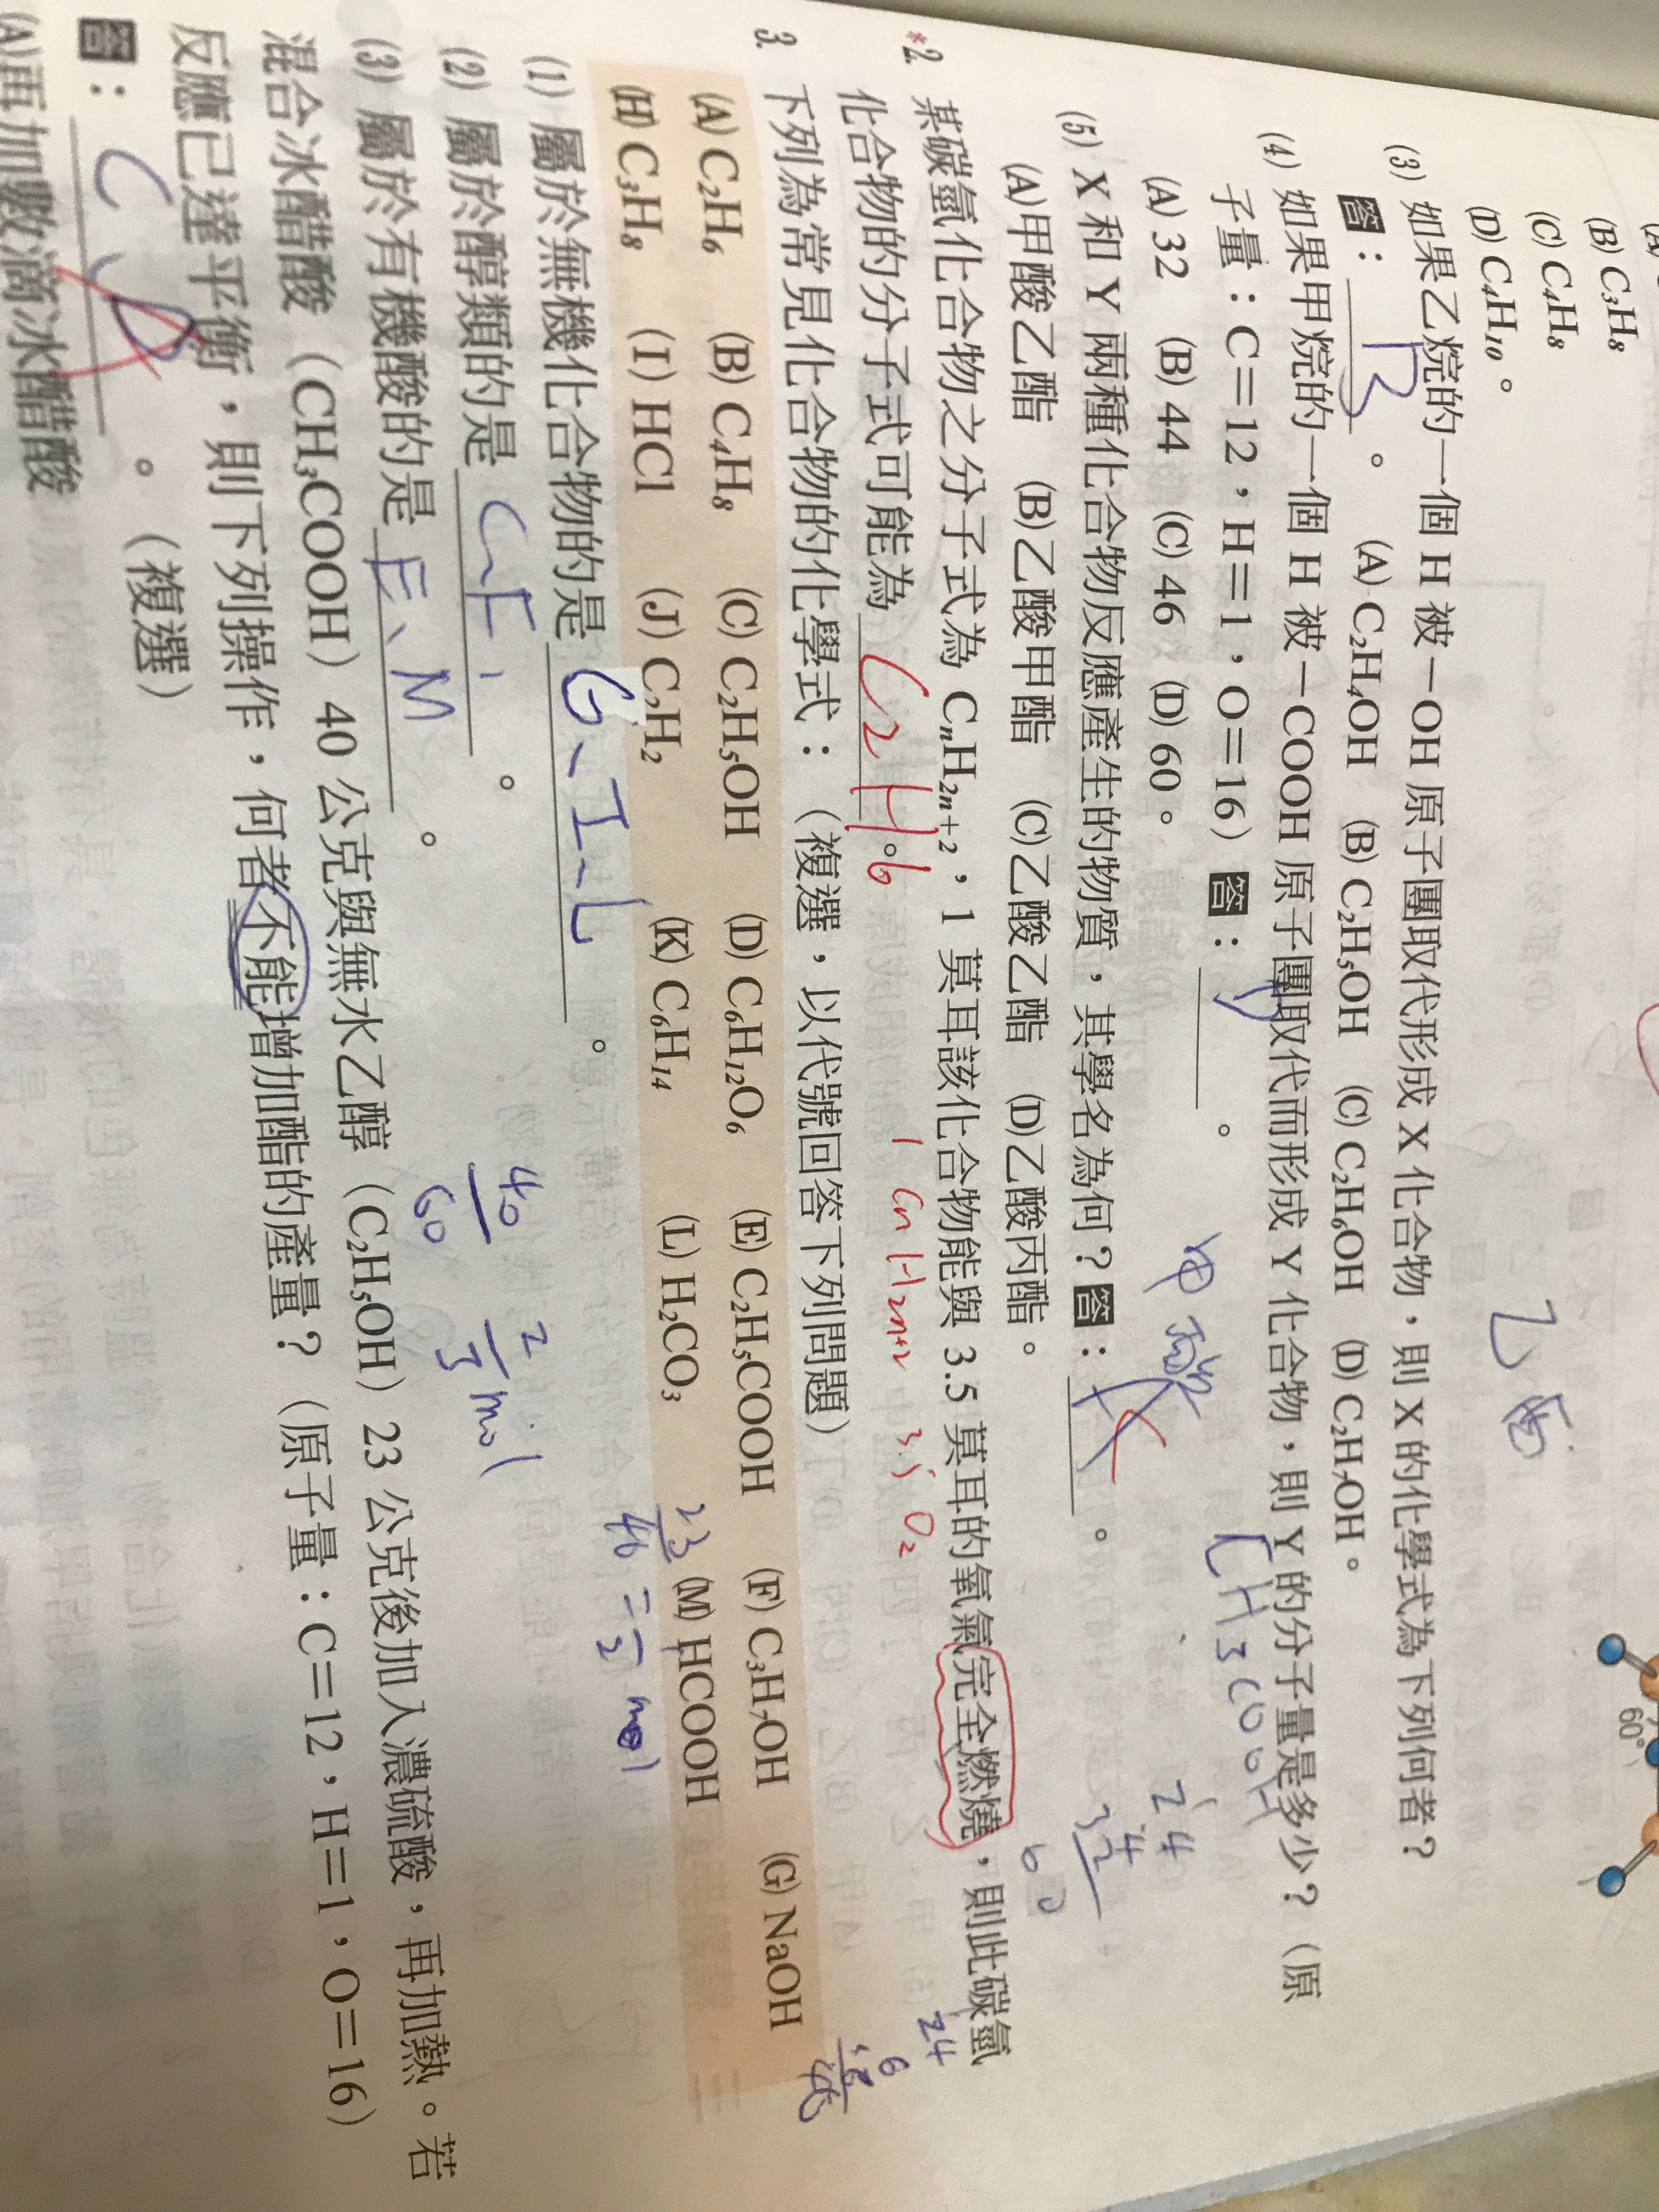 (B) C₃H₈
(C) C₄H₈
(D) C₄H₁₀。
乙酯
(3) 如果乙烷的一個 H 被－OH 原子團取代形成 X 化合物，則 X 的化學式為下列何者？
答：B。 (A) C₂H₄OH (B) C₂H₅OH (C) C₂H₆OH (D) C₂H₇OH。
(4) 如果甲烷的一個 H 被－COOH 原子團取代而形成 Y 化合物，則 Y 的分子量是多少？（原
子量：C＝12，H＝1，O＝16）答： 。
CH3COOH
(A) 32 (B) 44 (C) 46 (D) 60。
甲酸
24
4
32
60
(5) X 和 Y 兩種化合物反應產生的物質，其學名為何？答： 。
(A)甲酸乙酯 (B)乙酸甲酯 (C)乙酸乙酯 (D)乙酸丙酯。
*2. 某碳氫化合物之分子式為 CₙH₂ₙ₊₂，1 莫耳該化合物能與 3.5 莫耳的氧氣完全燃燒，則此碳氫
化合物的分子式可能為 C2H6。
1 CnH2n+2 3.5 O2
24
6
16
3. 下列為常見化合物的化學式：（複選，以代號回答下列問題）
(A) C₂H₆ (B) C₄H₈ (C) C₂H₅OH (D) C₆H₁₂O₆ (E) C₂H₅COOH (F) C₃H₇OH (G) NaOH
(H) C₃H₈ (I) HCl (J) C₂H₂ (K) C₆H₁₄ (L) H₂CO₃ (M) HCOOH
(1) 屬於無機化合物的是 G、I、L。
(2) 屬於醇類的是 C、F。
(3) 屬於有機酸的是 E、M。
23/46 = 1/2 mol
40/60 2/3 mol
混合冰醋酸（CH₃COOH）40 公克與無水乙醇（C₂H₅OH）23 公克後加入濃硫酸，再加熱。若
反應已達平衡，則下列操作，何者不能增加酯的產量？（原子量：C＝12，H＝1，O＝16）
答：C、 。（複選）
(A)再加數滴冰醋酸
60°